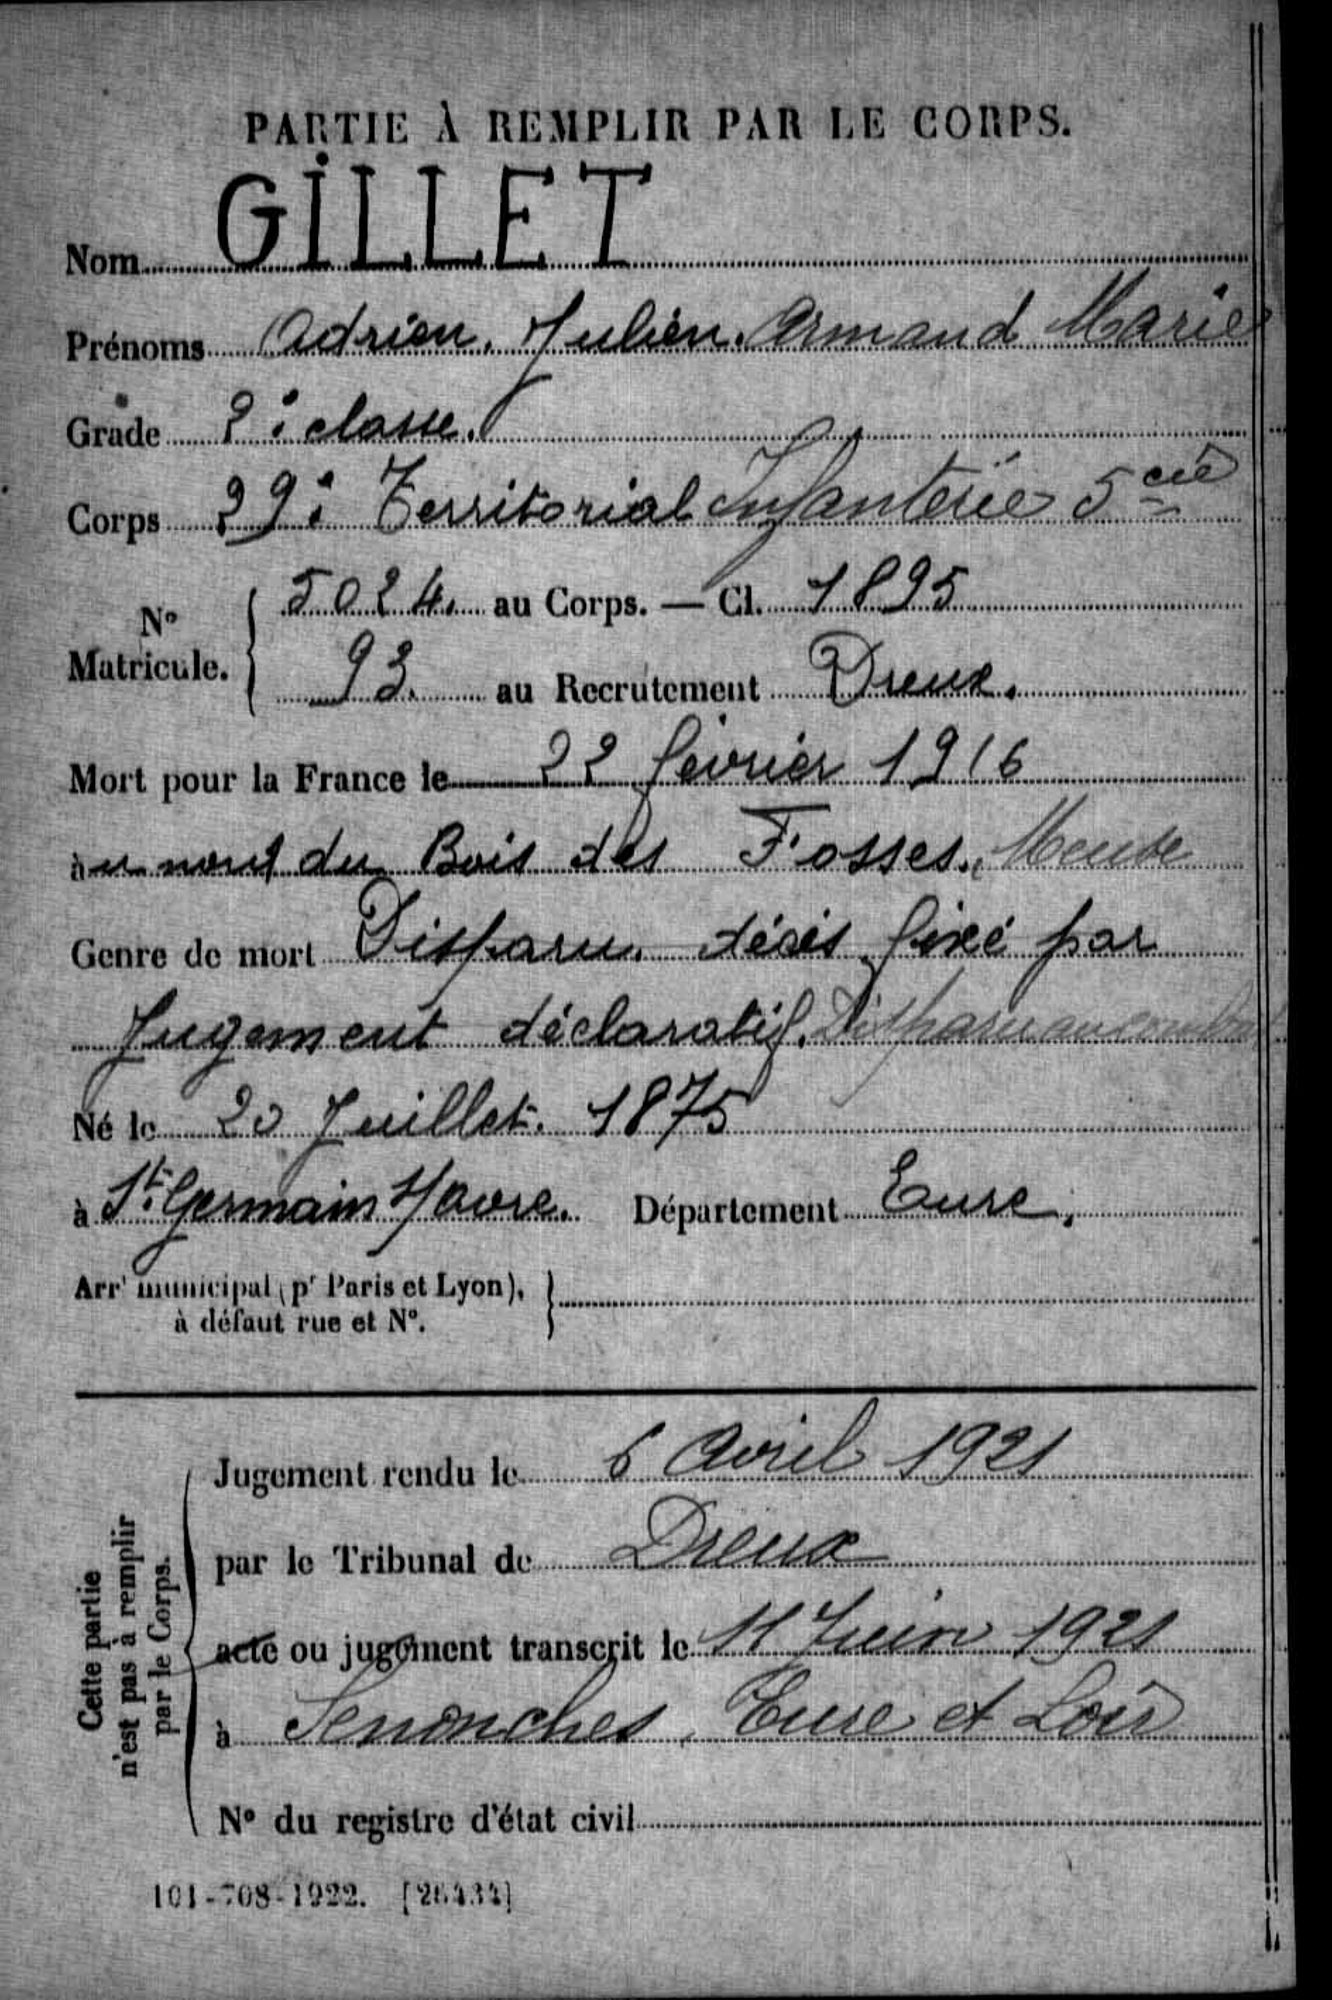 PARTIE À REMPLIR PAR LE CORPS.
Nom GILLET
Prénoms Adrien. Julien. Armand Marie
Grade 2e classe.
Corps 29e Territorial Infanterie 5 cie
No Matricule. 5024. au Corps. — Cl. 1895
93. au Recrutement Dreux.
Mort pour la France le 22 février 1916
au nord du Bois des Fosses. Meuse
Genre de mort Disparu. décès fixé par
Jugement déclaratif. Disparu au combat
Né le 20 Juillet. 1875
à St. Germain Havre. Département Eure.
Arrt municipal (pr Paris et Lyon),
à défaut rue et No.
Cette partie
n'est pas à remplir
par le Corps.
Jugement rendu le 6 Avril 1921
par le Tribunal de Dreux
acte ou jugement transcrit le 11 Juin 1921
à Senonches, Eure et Loir
No du registre d'état civil
101-708-1922. [26434]